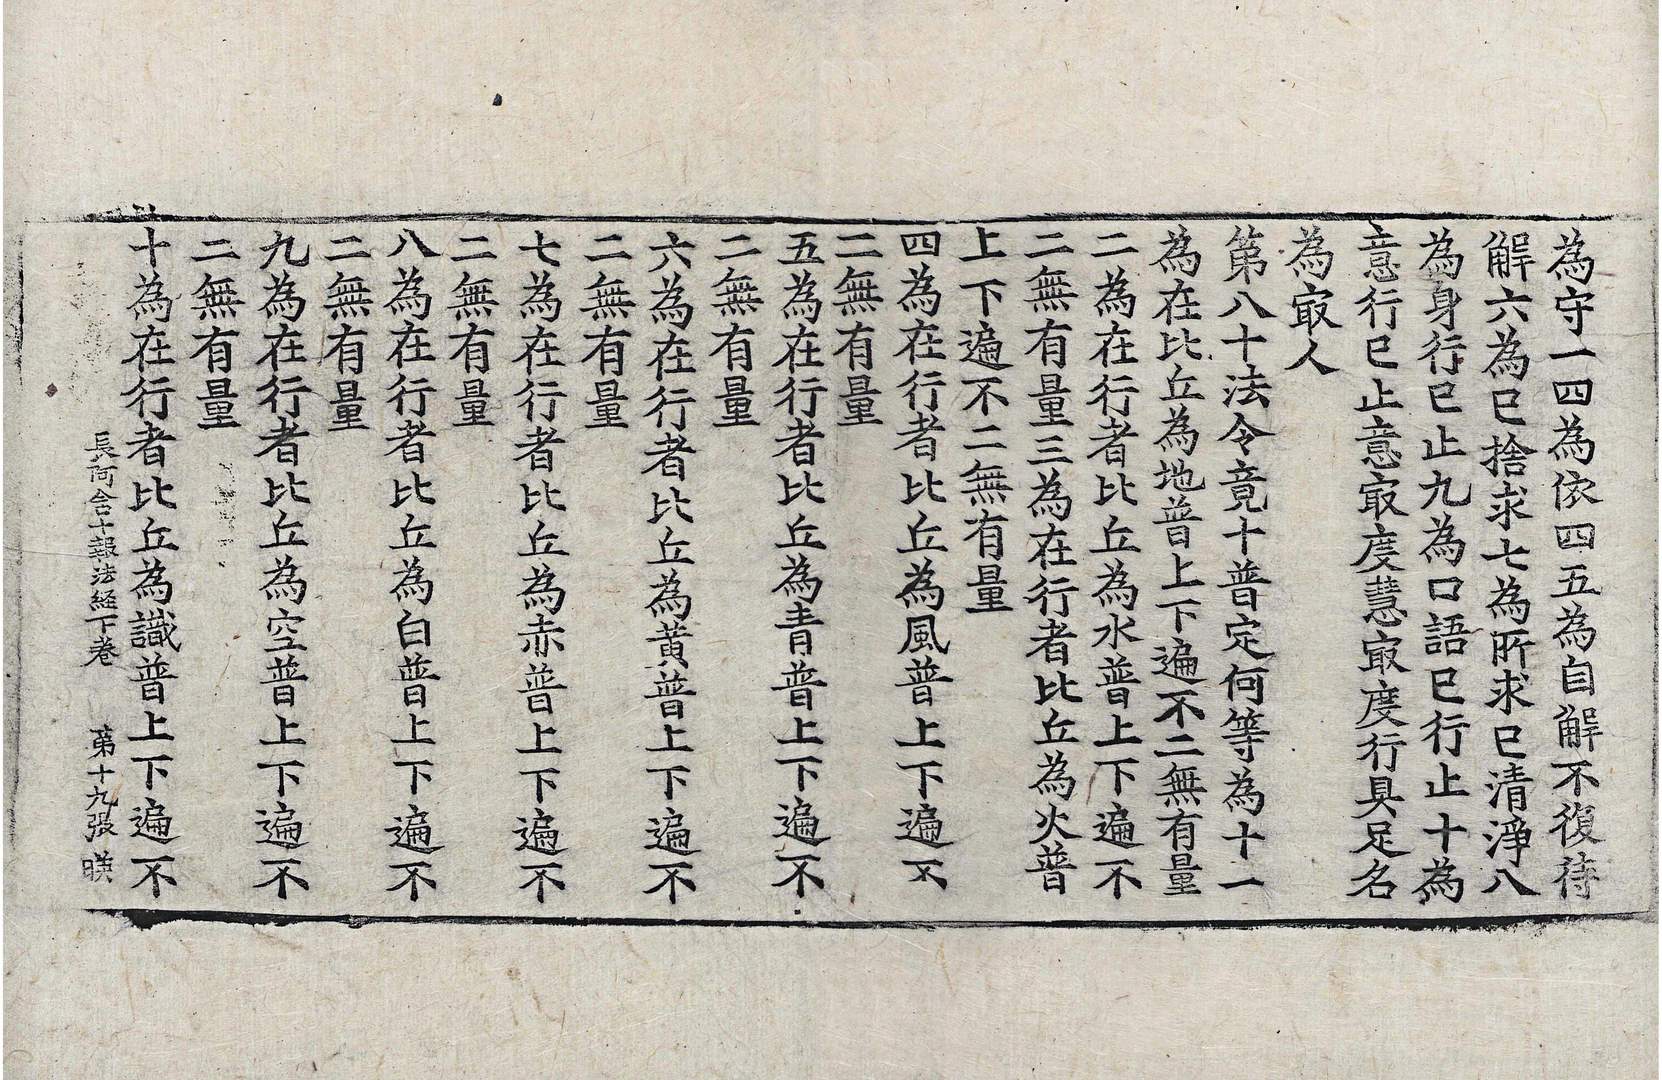 為守一四為依四五為自解不復待
解六為已捨求七為所求已清淨八
為身行已止九為口語已行止十為
意行已止意㝡度慧㝡度行具足名
為㝡人
第八十法令竟十普定何等為十一
為在比丘為地普上下遍不二無有量
二為在行者比丘為水普上下遍不
二無有量三為在行者比丘為火普
上下遍不二無有量
四為在行者比丘為風普上下遍不
二無有量
五為在行者比丘為青普上下遍不
二無有量
六為在行者比丘為黃普上下遍不
二無有量
七為在行者比丘為赤普上下遍不
二無有量
八為在行者比丘為白普上下遍不
二無有量
九為在行者比丘為空普上下遍不
二無有量
十為在行者比丘為識普上下遍不
長阿含十報法経下巻 第十九張 暎